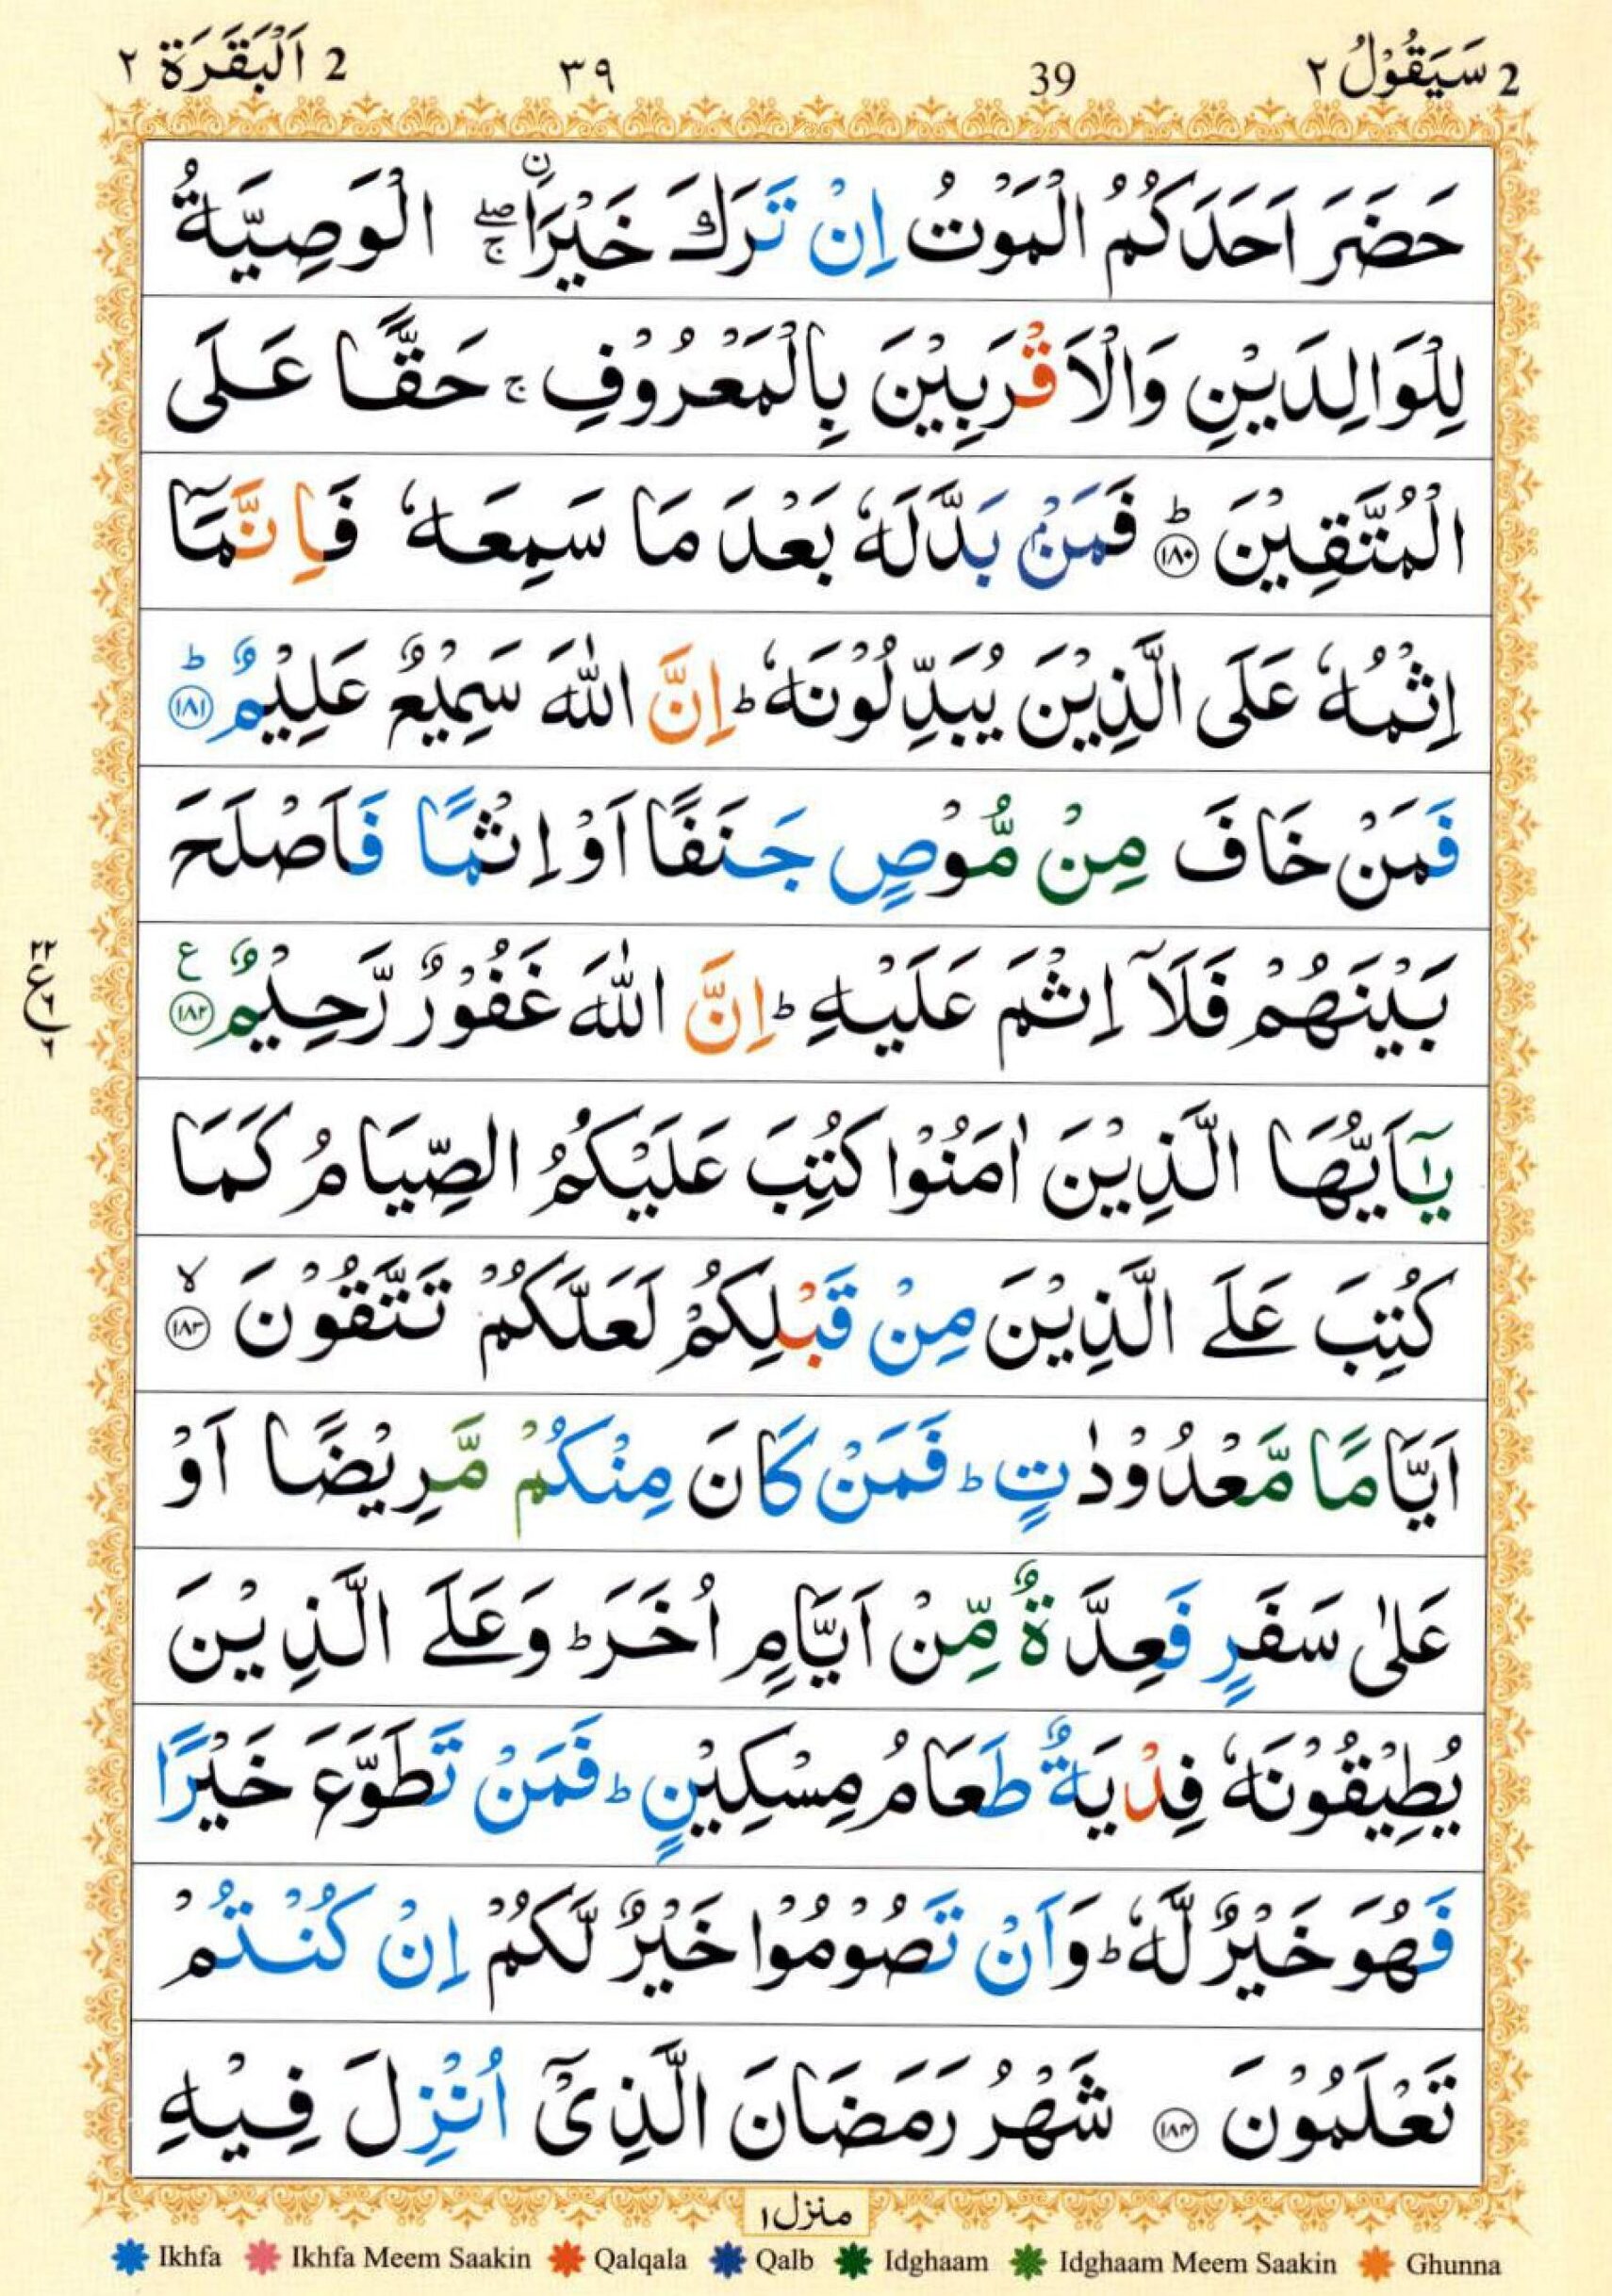 2 سَيَقُوْلُ ٢ 39 ٣٩ 2 اَلْبَقَرَة ٢
حَضَرَ اَحَدَكُمُ الْمَوْتُ اِنْ تَرَكَ خَيْرَاۨ ۖۚ الْوَصِيَّةُ
لِلْوَالِدَيْنِ وَالْاَقْرَبِيْنَ بِالْمَعْرُوْفِ ۚ حَقًّا عَلَى
الْمُتَّقِيْنَ ؕ ﴿١٨٠﴾ فَمَنْۢ بَدَّلَهٗ بَعْدَ مَا سَمِعَهٗ فَاِنَّمَاۤ
اِثْمُهٗ عَلَى الَّذِيْنَ يُبَدِّلُوْنَهٗ ؕ اِنَّ اللّٰهَ سَمِيْعٌ عَلِيْمٌ ؕ ﴿١٨١﴾
فَمَنْ خَافَ مِنْ مُّوْصٍ جَنَفًا اَوْ اِثْمًا فَاَصْلَحَ
بَيْنَهُمْ فَلَاۤ اِثْمَ عَلَيْهِ ؕ اِنَّ اللّٰهَ غَفُوْرٌ رَّحِيْمٌ ع ﴿١٨٢﴾
٢٢ ع ٦ ٦
يٰۤاَيُّهَا الَّذِيْنَ اٰمَنُوْا كُتِبَ عَلَيْكُمُ الصِّيَامُ كَمَا
كُتِبَ عَلَى الَّذِيْنَ مِنْ قَبْلِكُمْ لَعَلَّكُمْ تَتَّقُوْنَ ۙ ﴿١٨٣﴾
اَيَّامًا مَّعْدُوْدٰتٍ ؕ فَمَنْ كَانَ مِنْكُمْ مَّرِيْضًا اَوْ
عَلٰى سَفَرٍ فَعِدَّةٌ مِّنْ اَيَّامٍ اُخَرَ ؕ وَعَلَى الَّذِيْنَ
يُطِيْقُوْنَهٗ فِدْيَةٌ طَعَامُ مِسْكِيْنٍ ؕ فَمَنْ تَطَوَّعَ خَيْرًا
فَهُوَ خَيْرٌ لَّهٗ ؕ وَاَنْ تَصُوْمُوْا خَيْرٌ لَّكُمْ اِنْ كُنْتُمْ
تَعْلَمُوْنَ ﴿١٨٤﴾ شَهْرُ رَمَضَانَ الَّذِيْۤ اُنْزِلَ فِيْهِ
منزل ١
Ikhfa Ikhfa Meem Saakin Qalqala Qalb Idghaam Idghaam Meem Saakin Ghunna